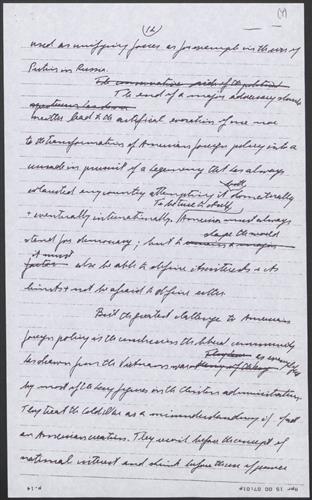 (12)
used as unifying forces as for example in the case of
Putin in Russia.
The conservative side of the political
The end of a major adversary should
neither lead to the artificial creation of one nor
to the transformation of American foreign policy into a
crusade in pursuit of a hegemony that has always
exhausted any country attempting it both domestically
& eventually internationally. America must always
shape the world
stand for democracy; but to remain a major
it must
factor also be able to define its interests & its
limits & not be afraid to define either.
But the greatest challenge to American
foreign policy is the
has drawn from the Vietnam war
by most of the key figures in the Clinton administration.
They treat the Cold War as a misunderstanding if not
an American creation. They recoil before the concept of
national interest and shrink before the use of power
P.14
Apr 15 00 07:01P